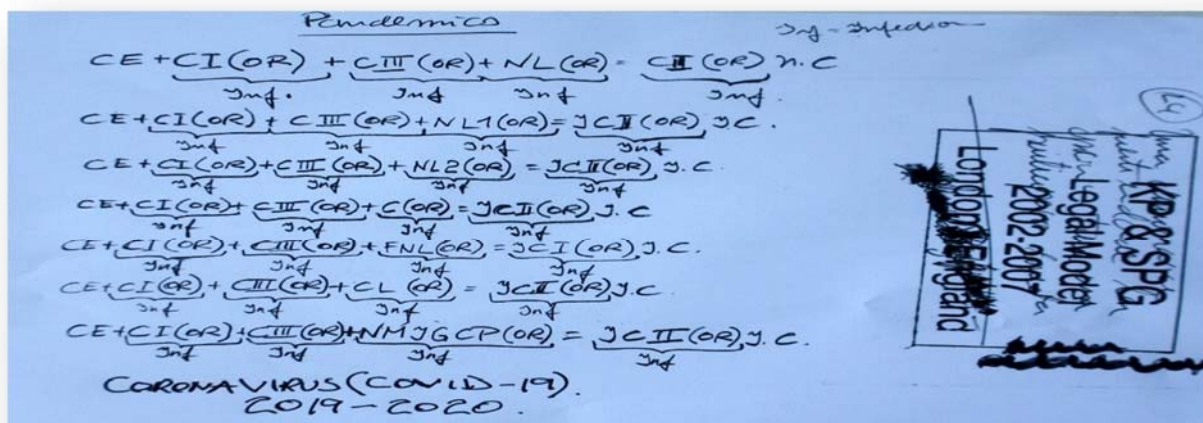 Pandemics
Inf - Infection
CE + CI (OR) + CIII (OR) + NL (OR) = CII (OR) n.C
Inf. Inf Inf Inf.
CE + CI (OR) + CIII (OR) + NL1 (OR) = JCII (OR) J.C.
Inf Inf Inf Inf
CE + CI (OR) + CIII (OR) + NL2 (OR) = JCII (OR) J.C.
Inf Inf Inf Inf
CE + CI (OR) + CIII (OR) + C (OR) = JCII (OR) J.C
Inf Inf Inf Inf
CE + CI (OR) + CIII (OR) + FNL (OR) = JCI (OR) J.C.
Inf Inf Inf Inf
CE + CI (OR) + CIII (OR) + CL (OR) = JCII (OR) J.C.
Inf Inf Inf Inf
CE + CI (OR) + CIII (OR) + NMJGCP (OR) = JCII (OR) J.C.
Inf Inf Inf Inf
CORONAVIRUS (COVID-19).
2019-2020.
KP on SPG
Legal Model
2002.2007
London England